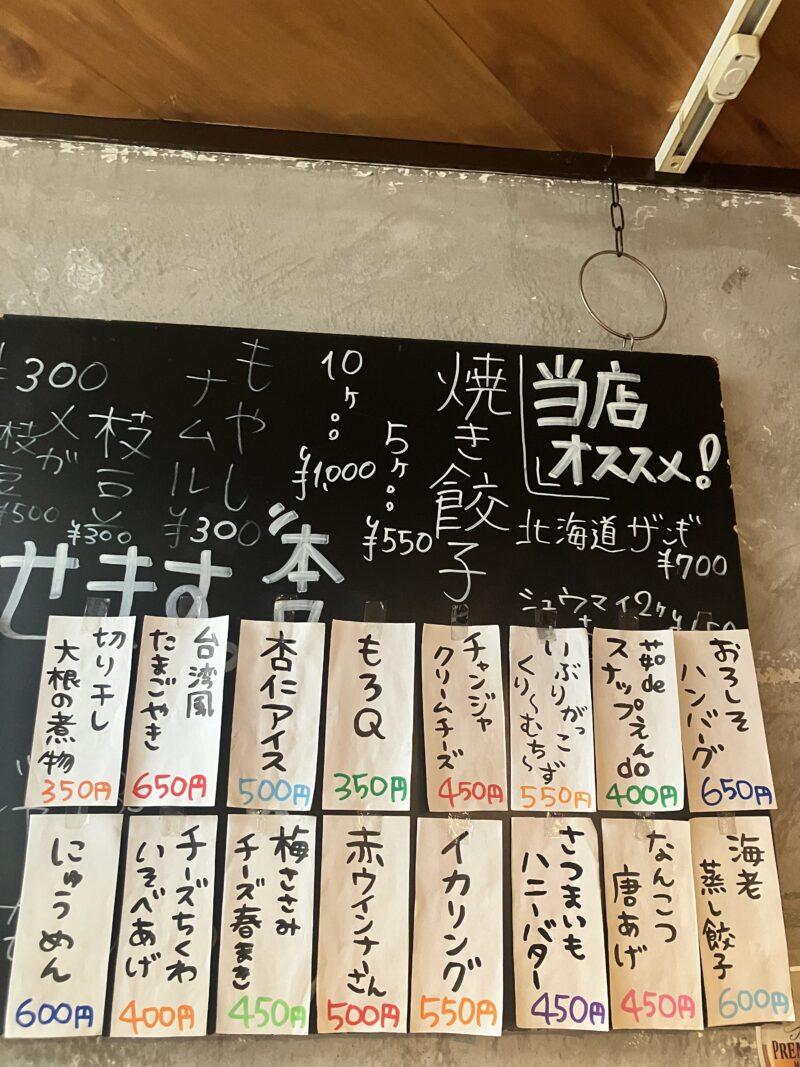 当店
オススメ!
北海道ザンギ
¥700
シュウマイ2ヶ
焼き餃子
5ヶ
¥550
10ヶ
¥1,000
もやし
ナムル
¥300
枝豆
¥300
メガ
枝豆
¥500
¥300
せます。
おろしそ
ハンバーグ
650円
茹de
スナップえんdo
400円
いぶりがっこ
くり〜むち〜ず
550円
チャンジャ
クリームチーズ
450円
もろQ
350円
杏仁アイス
500円
台湾風
たまごやき
650円
切り干し
大根の煮物
350円
海老
蒸し餃子
600円
なんこつ
唐あげ
450円
さつまいも
ハニーバター
450円
イカリング
550円
赤ウインナーさん
500円
梅ささみ
チーズ春まき
450円
チーズちくわ
いそべあげ
400円
にゅうめん
600円